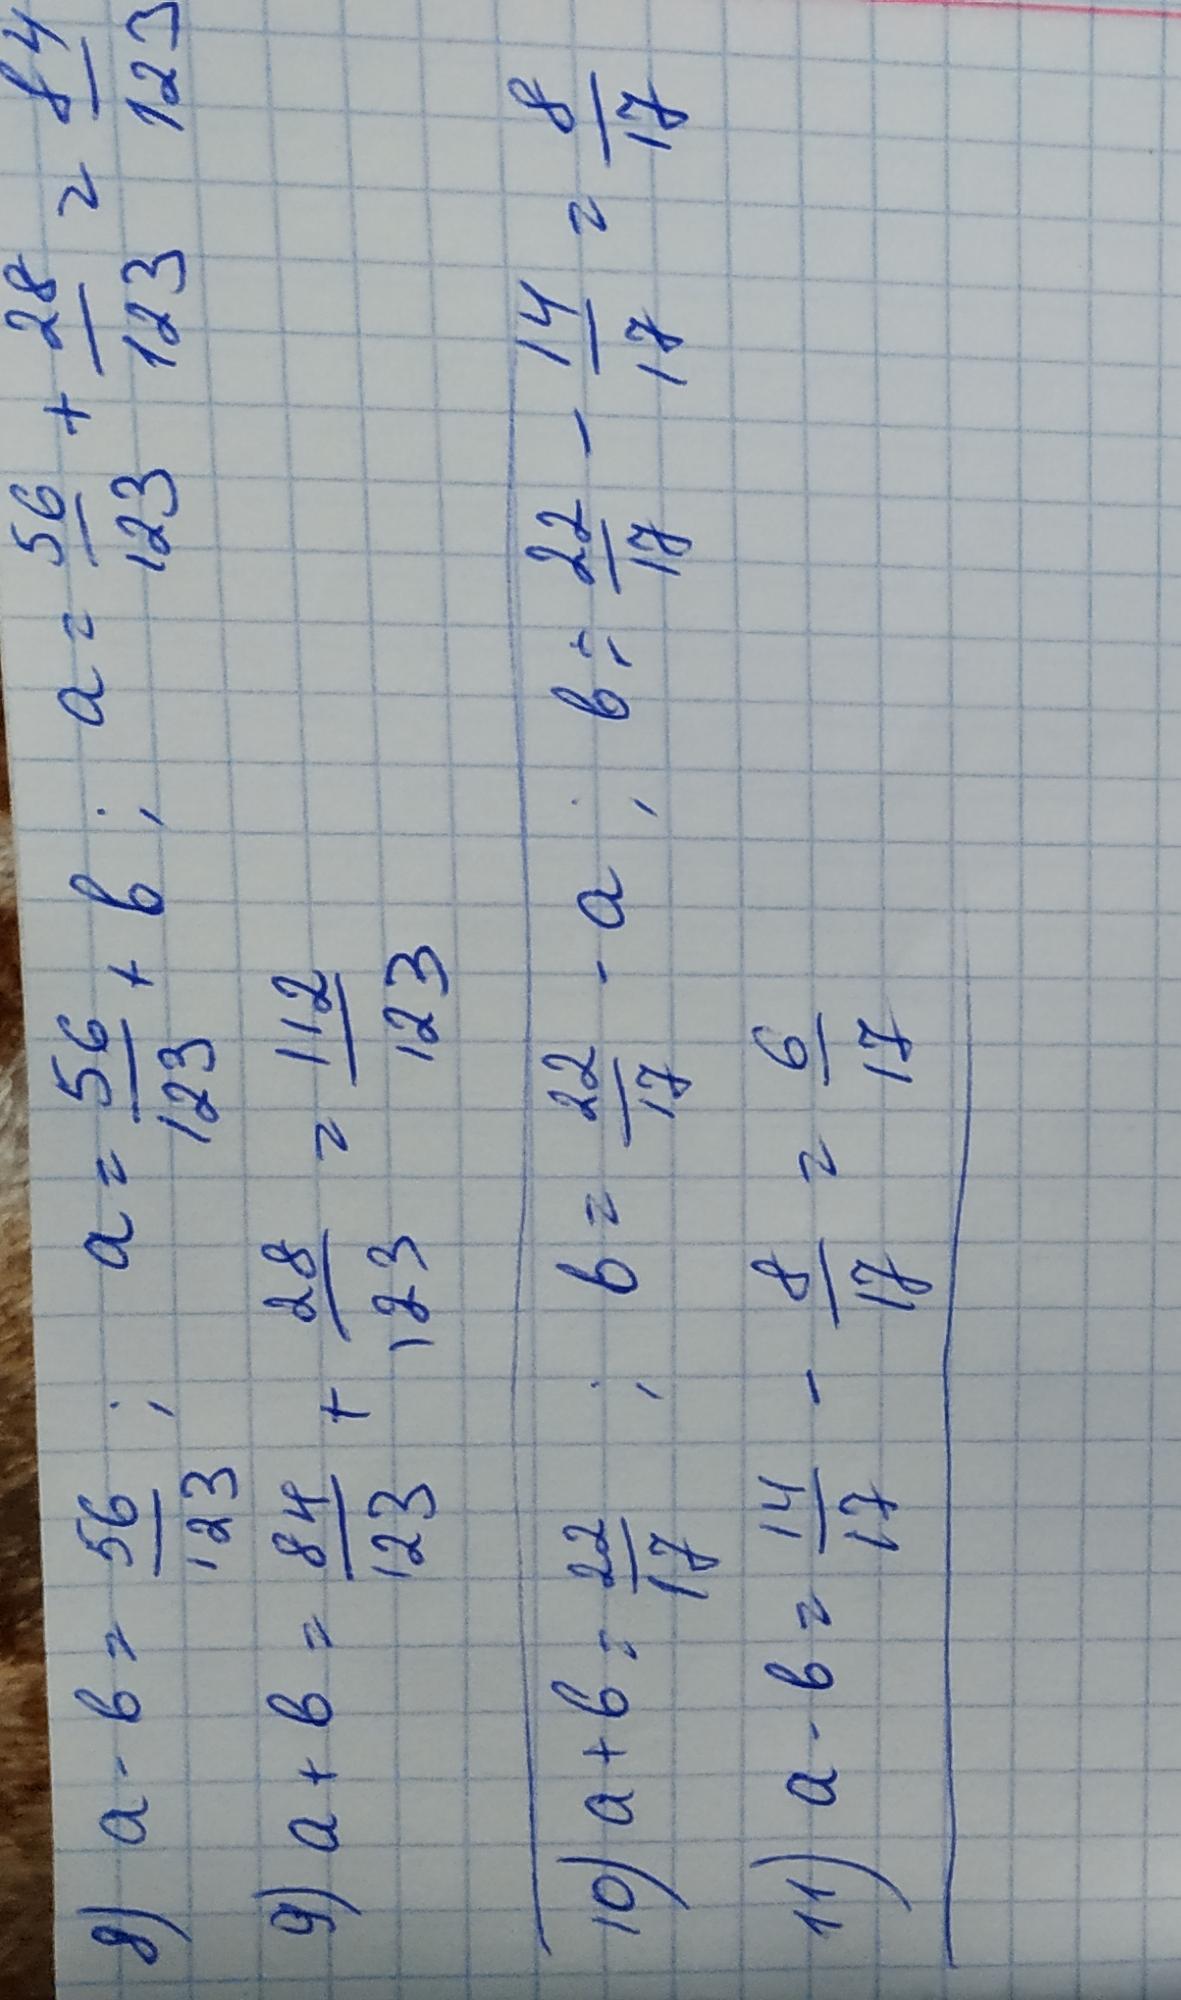 8) a - b = 56/123 ; a = 56/123 + b ; a = 56/123 + 28/123 = 84/123
9) a + b = 84/123 + 28/123 = 112/123
10) a + b = 22/17 ; b = 22/17 - a ; b = 22/17 - 14/17 = 8/17
11) a - b = 14/17 - 8/17 = 6/17